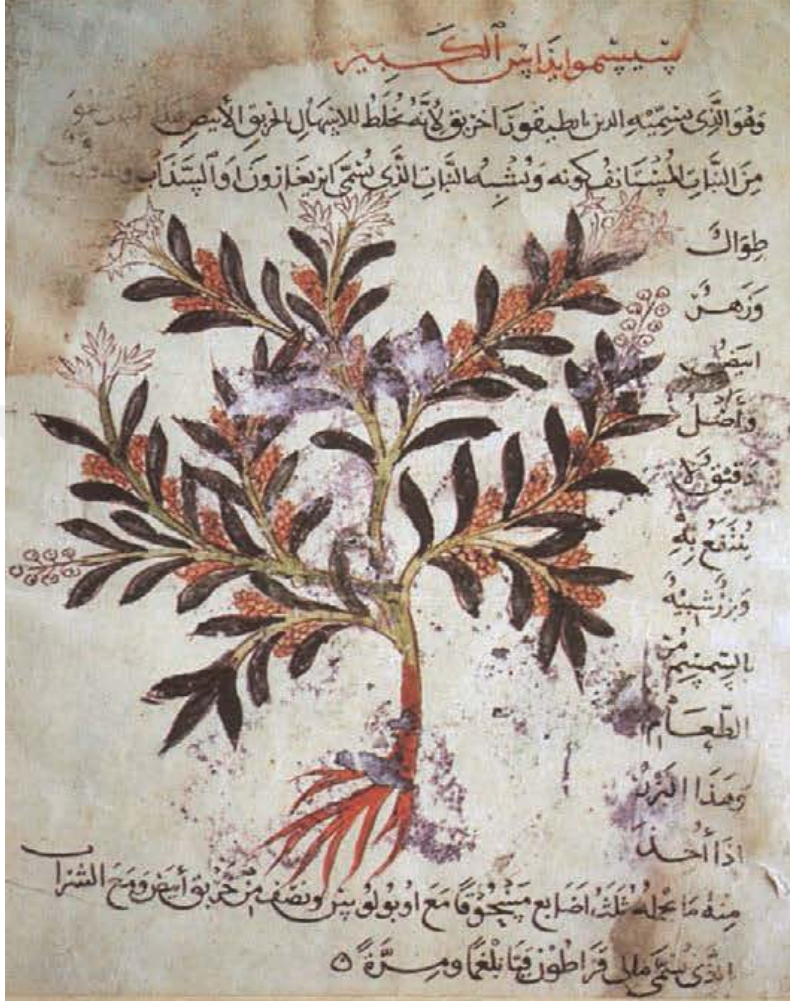 سيسموايذاس الكبير
وهو الذي يسميه الذين بانطيقون اخربق لأنه يخلط للاسهال بالخربق الأبيض
من النبات المستأنف كونه ويشبه النبات الذي يسمى اريغارون او السذاب
طوال
وزهر
ابيض
وأصل
دقيق لا
ينتفع به
وبزر شبيه
بالسمسم مر
الطعام
وهذا البزر
اذا أخذ
منه ما تحمله ثلث أصابع مسحوقا مع اوبولوس ونصف من خربق أبيض ومع الشراب
الذي يسمى مالي قراطون قيا بلغما ومرة